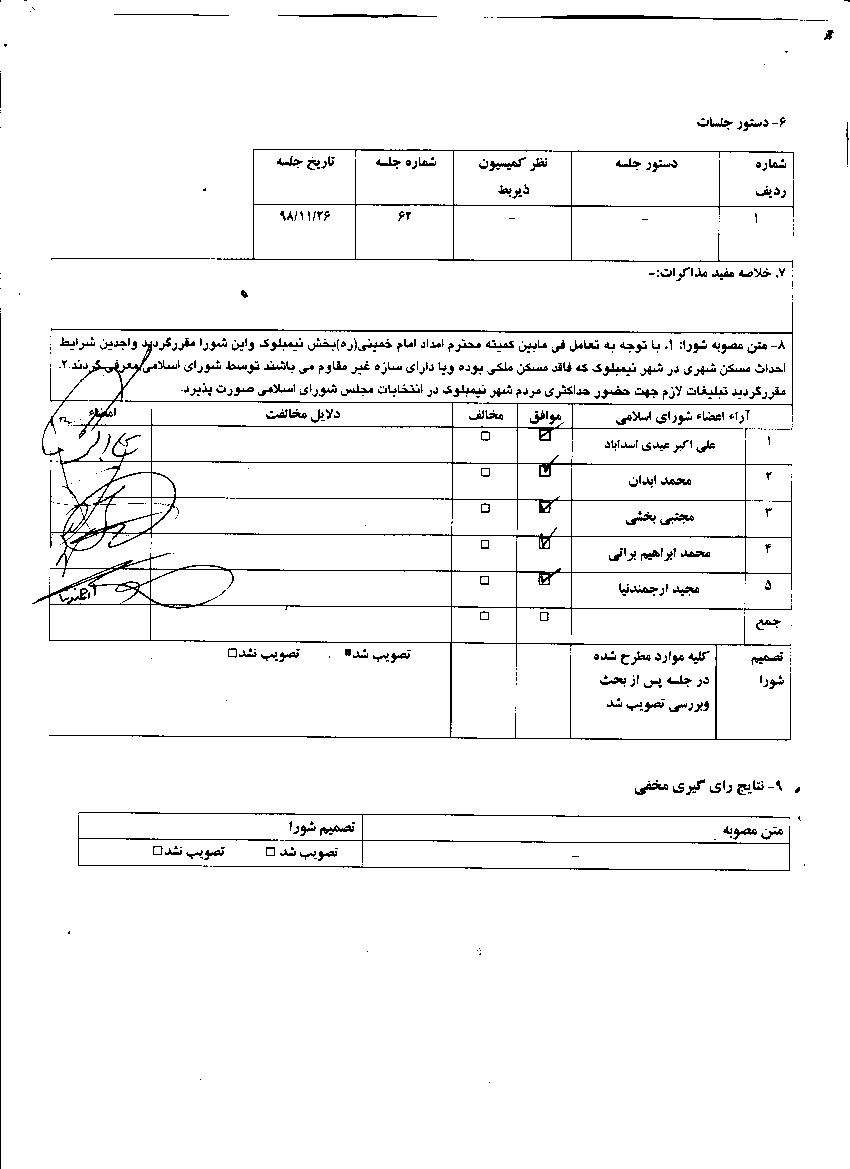 ۶- دستور جلسات
شماره ردیف دستور جلسه نظر کمیسیون ذیربط شماره جلسه تاریخ جلسه
۱ – – ۶۲ ۹۸/۱۱/۲۶
۷. خلاصه مفید مذاکرات:-
۸- متن مصوبه شورا: ۱. با توجه به تعامل فی مابین کمیته محترم امداد امام خمینی(ره)بخش نیمبلوک واین شورا مقررگردید واجدین شرایط
احداث مسکن شهری در شهر نیمبلوک که فاقد مسکن ملکی بوده ویا دارای سازه غیر مقاوم می باشند توسط شورای اسلامی معرفی گردند.۲.
مقررگردید تبلیغات لازم جهت حضور حداکثری مردم شهر نیمبلوک در انتخابات مجلس شورای اسلامی صورت پذیرد.
آراء اعضاء شورای اسلامی موافق مخالف دلایل مخالفت امضاء
۱ علی اکبر عیدی اسدآباد ☑ □
۲ محمد ایدان ☑ □
۳ مجتبی بخشی ☑ □
۴ محمد ابراهیم براتی ☑ □
۵ مجید ارجمندنیا ☑ □
جمع □ □
تصمیم شورا کلیه موارد مطرح شده تصویب شد■ تصویب نشد□
در جلسه پس از بحث
وبررسی تصویب شد
۹- نتایج رای گیری مخفی
متن مصوبه تصمیم شورا
– تصویب شد □ تصویب نشد□